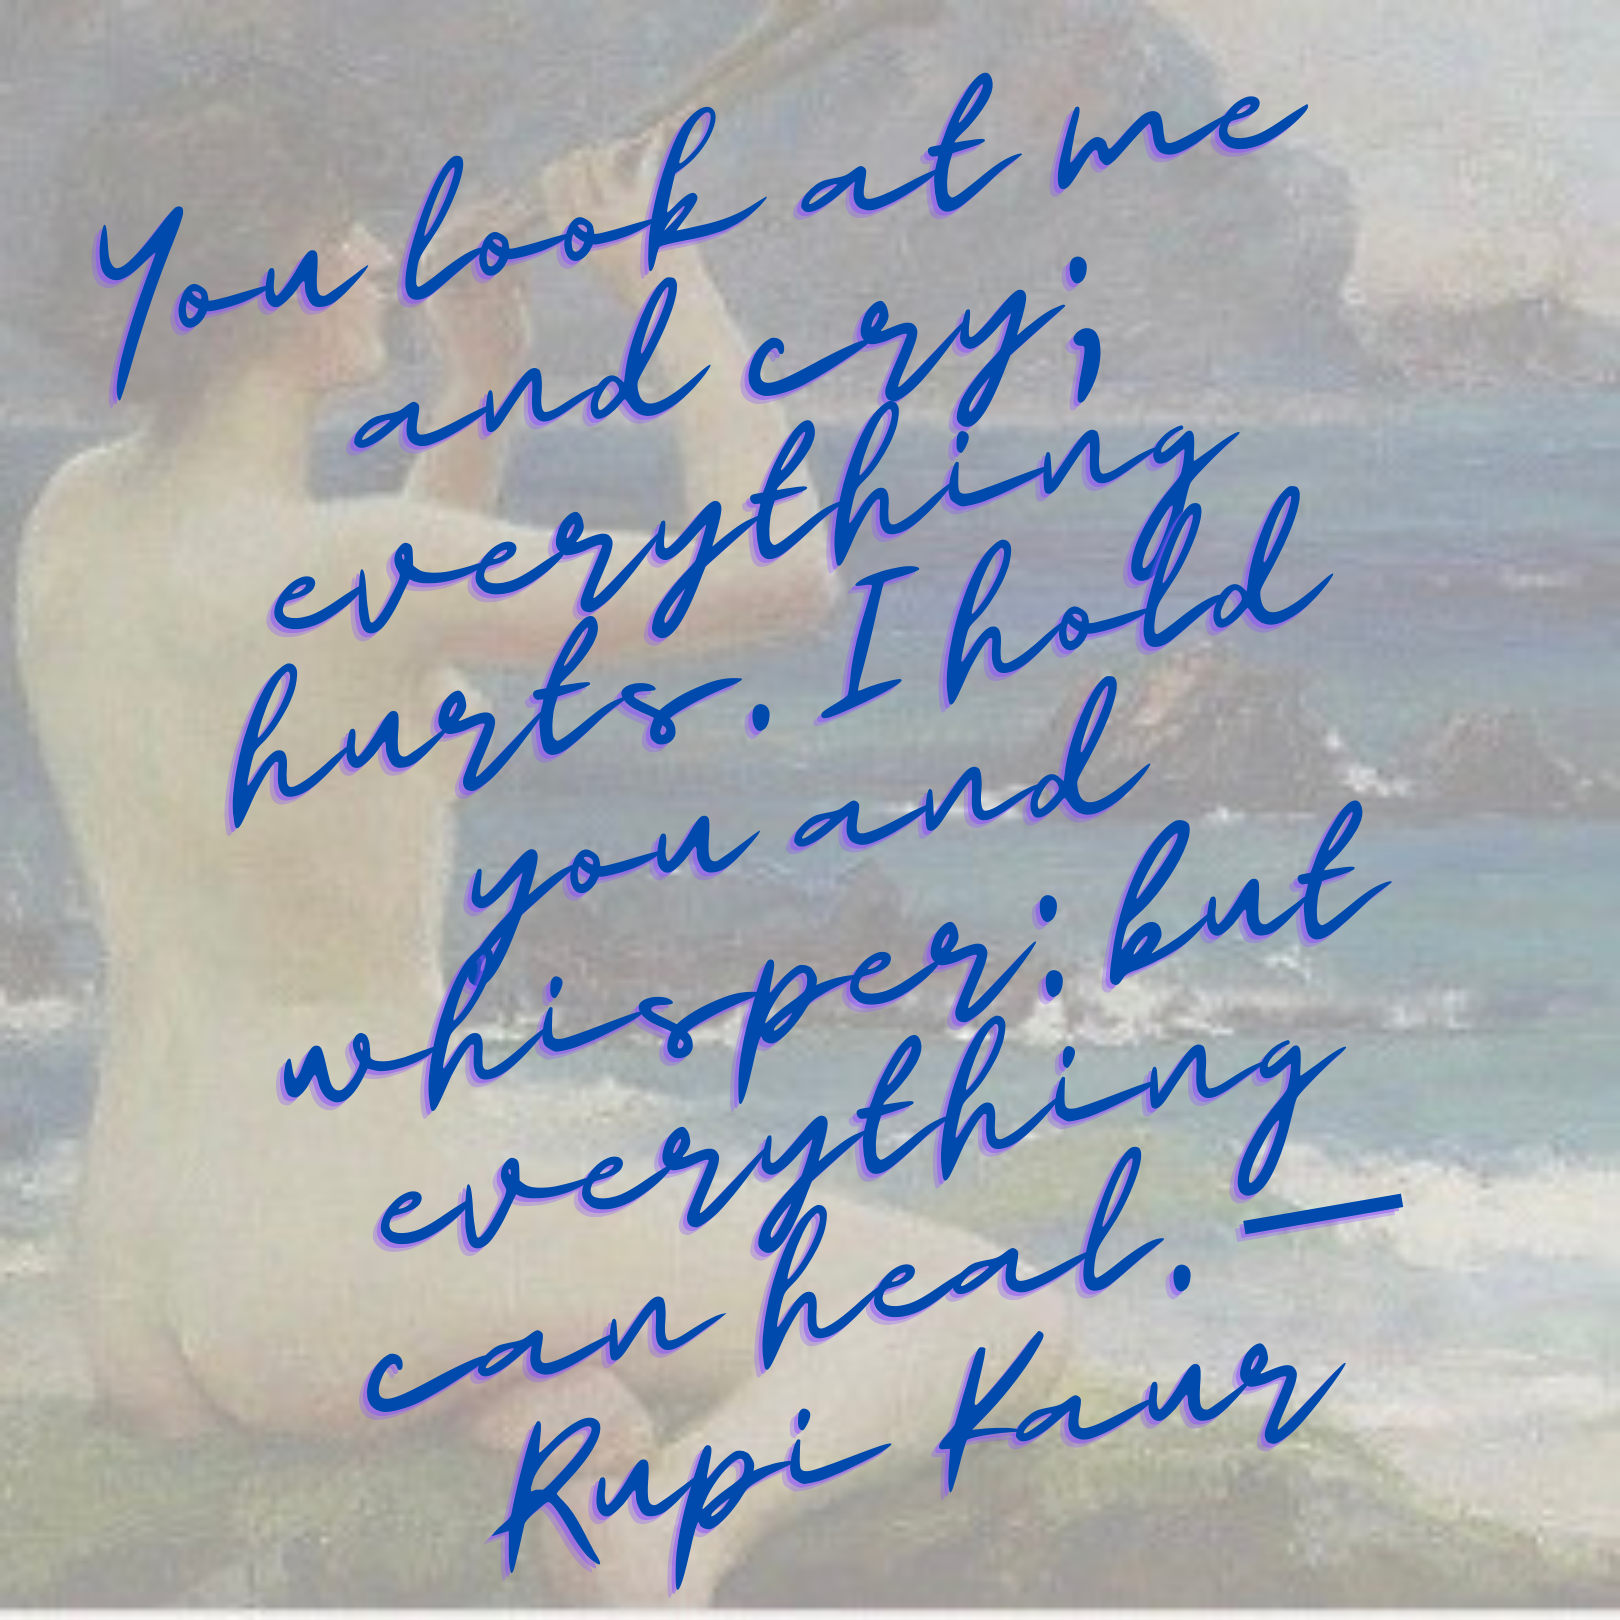 You look at me
and cry;
everything
hurts. I hold
you and
whisper: but
everything
can heal. —
Rupi Kaur